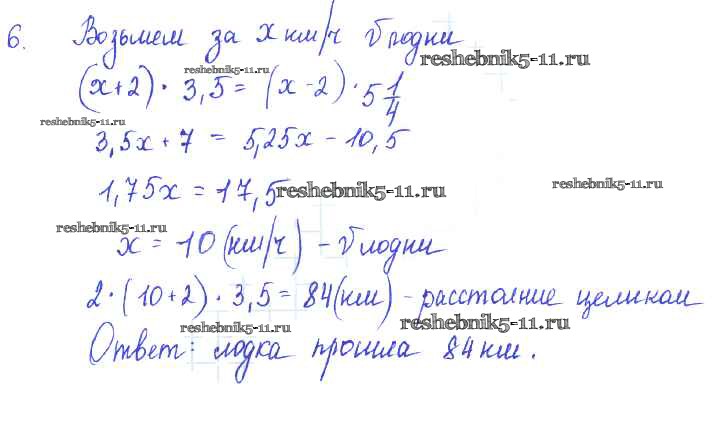 6. Возьмем за x км/ч V лодки
reshebnik5-11.ru
(x+2) · 3,5 = (x-2) · 5 1/4
reshebnik5-11.ru
reshebnik5-11.ru
3,5x + 7 = 5,25x - 10,5
1,75x = 17,5
reshebnik5-11.ru
reshebnik5-11.ru
reshebnik5-11.ru
x = 10 (км/ч) - V лодки
2 · (10+2) · 3,5 = 84 (км) - расстояние целиком
reshebnik5-11.ru
reshebnik5-11.ru
Ответ: лодка прошла 84 км.